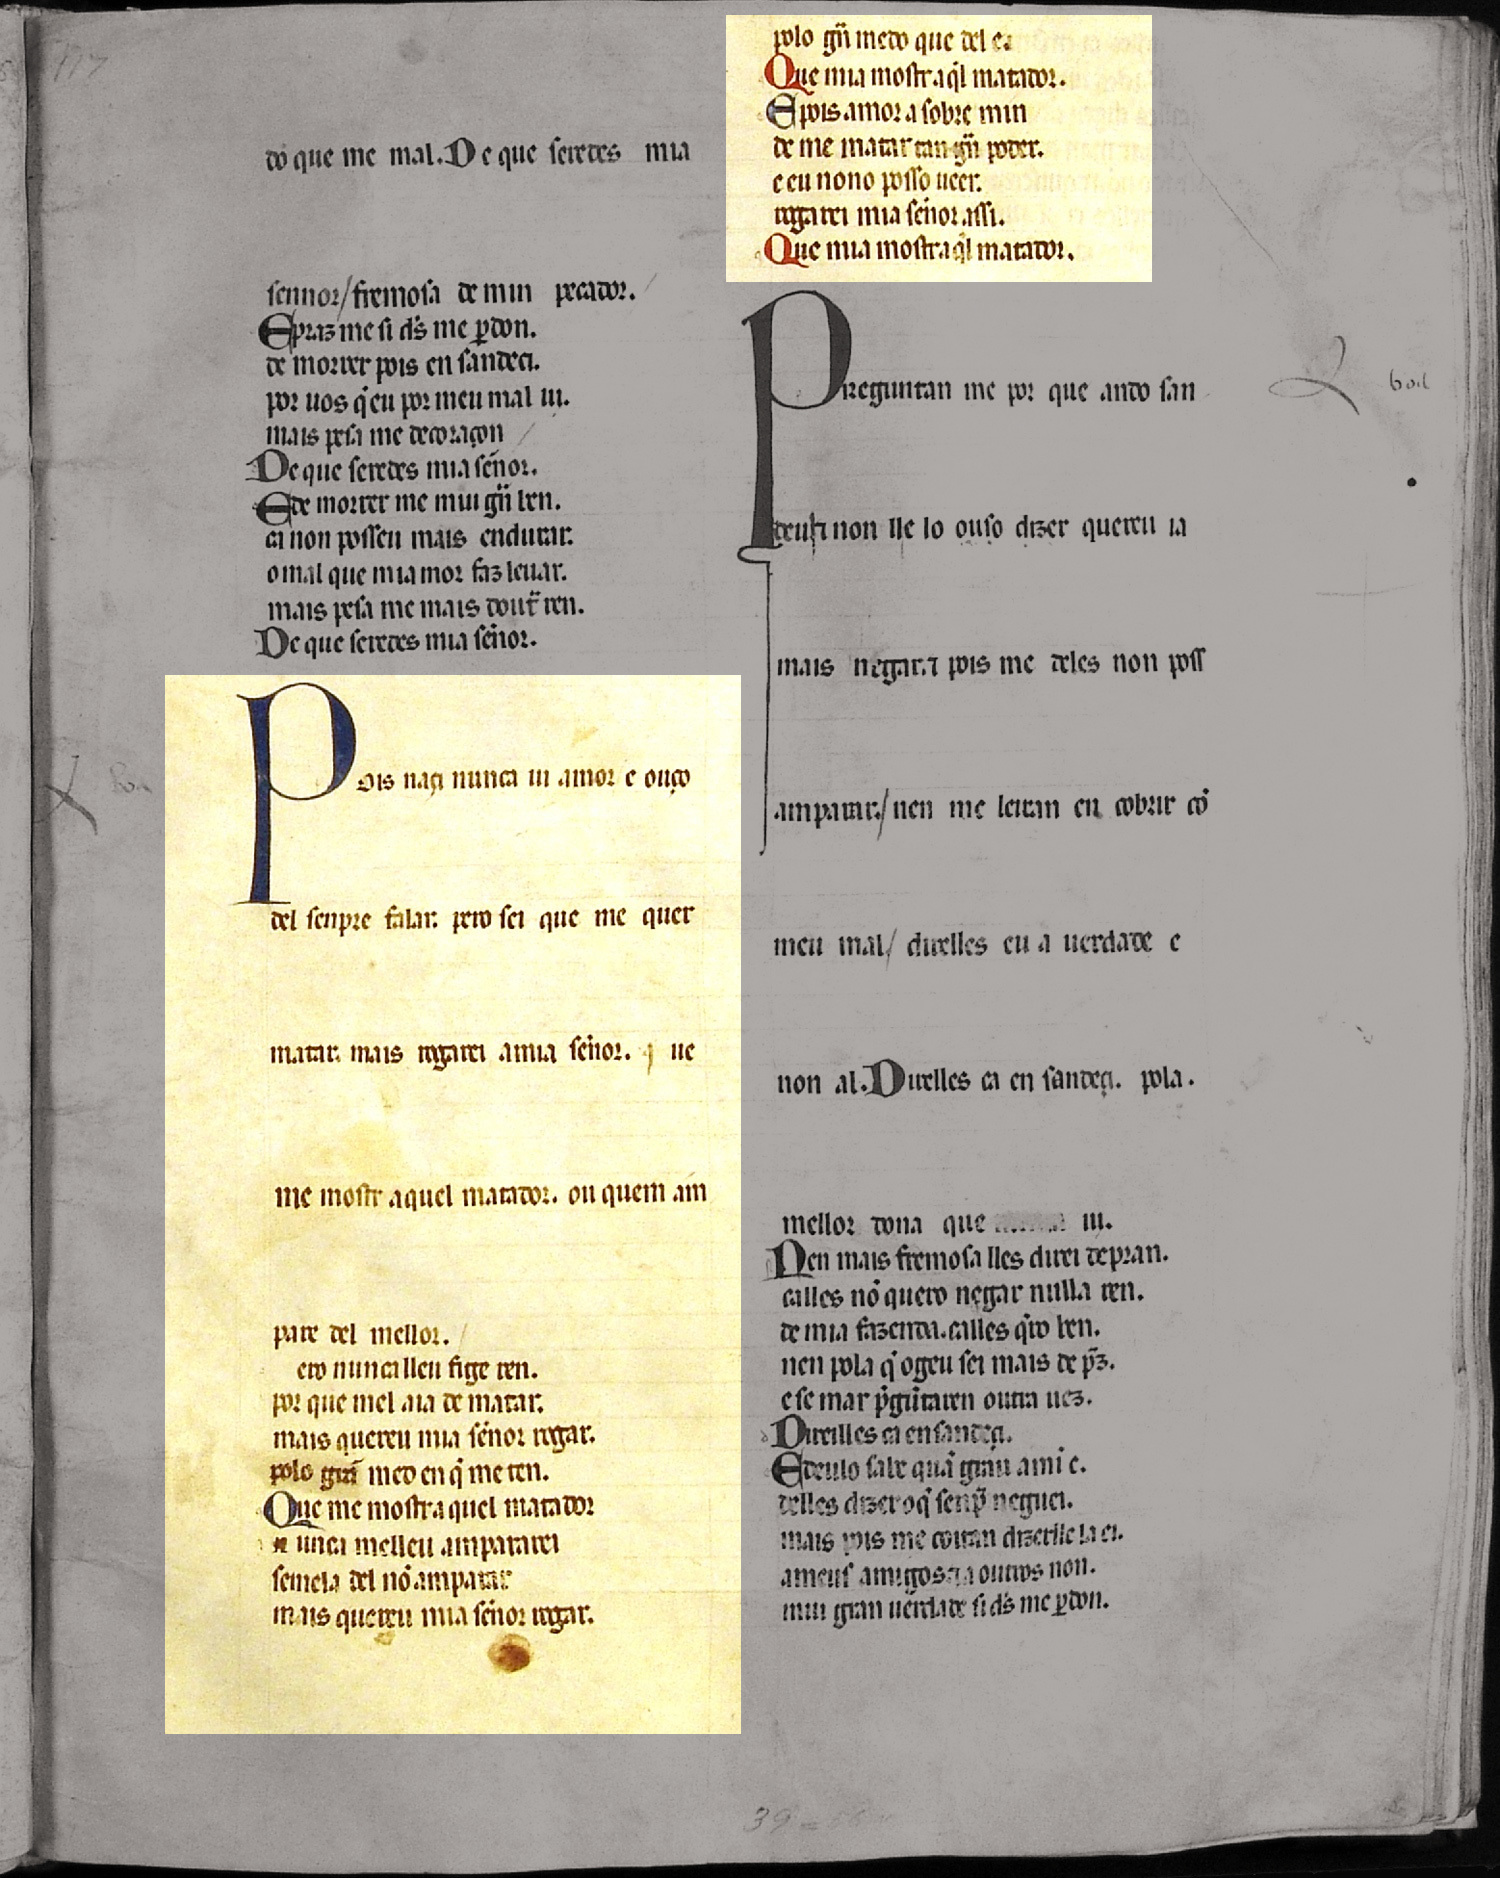 dõ que me mal. De que seredes mia
sennor/fremosa de min pecador.
E praz me si d̃s me ꝑdon.
de morrer pois en sandeci.
por uos q̃ eu por meu mal ui.
mais pesa me de coraçon
De que seredes mia sẽnor.
E de morrer me mui gñ ben.
ca non posseu mais endurar.
o mal que mi amor faz leuar.
mais pesa me mais doutr̃ ren.
De que seredes mia sẽnor.
Pois naçi nunca ui amor e ouço
del senpre falar. pero sei que me quer
matar. mais rogarei a mia sẽnor. q ue
me mostr aquel matador. ou quem am
pare del mellor.
ero nunca lleu fige ren.
por que mel aia de matar.
mais quereu mia sẽnor rogar.
polo grã medo en q̃ me ten.
Que me mostra quel matador
nunca melleu ampararei
se mela del nõ amparar
mais quereu mia sẽnor rogar.
polo gñ medo que del ei
Que mia mostra q̃l matador.
E pois amor a sobre min
de me matar tan gñ poder.
e eu nono posso ueer.
rogarei mia sẽnor assi.
Que mia mostra q̃l matador.
Preguntan me por que ando san
deu non lle lo ouso dizer quereu ia
mais negar. pois me deles non poss
amparar./nen me leixan en cobrir cõ
meu mal/ direlles eu a uerdade e
non al. Direlles ca en sandeçi. pola.
mellor dona que ui.
Nen mais fremosa lles direi de pran.
calles nõ quero negar nulla ren.
de mia fazenda. calles q̃ro ben.
nen pola q̃ ogeu sei mais de p̃z.
e se mar p̃gũtaren outra uez.
Direilles ca ensandeçi.
E deulo sabe quã graue a mi e.
delles dizer o q̃ senp̃ neguei.
mais pois me coitan dizerlle la ei.
a meus amigos e a outros non.
mui gran uerdade si d̃s me ꝑdon.